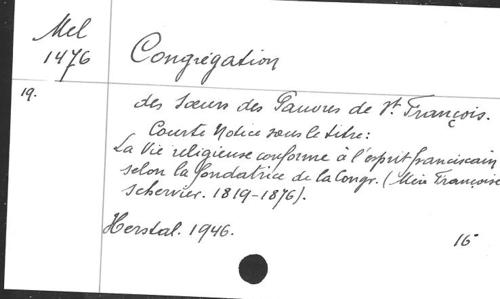 Mel
1476
Congrégation
19.
des Soeurs des Pauvres de St François.
Courte Notice sous le titre:
La Vie religieuse conforme à l'esprit franciscain
selon la fondatrice de la Congr. (Mère Françoise
Schervier. 1819-1876).
Herstal. 1946.
16°